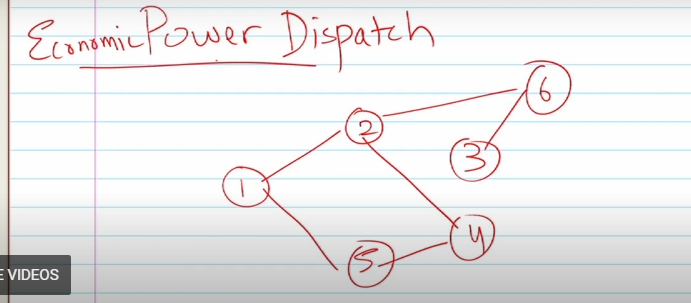 Economic Power Dispatch
6
2
3
1
4
5
E VIDEOS